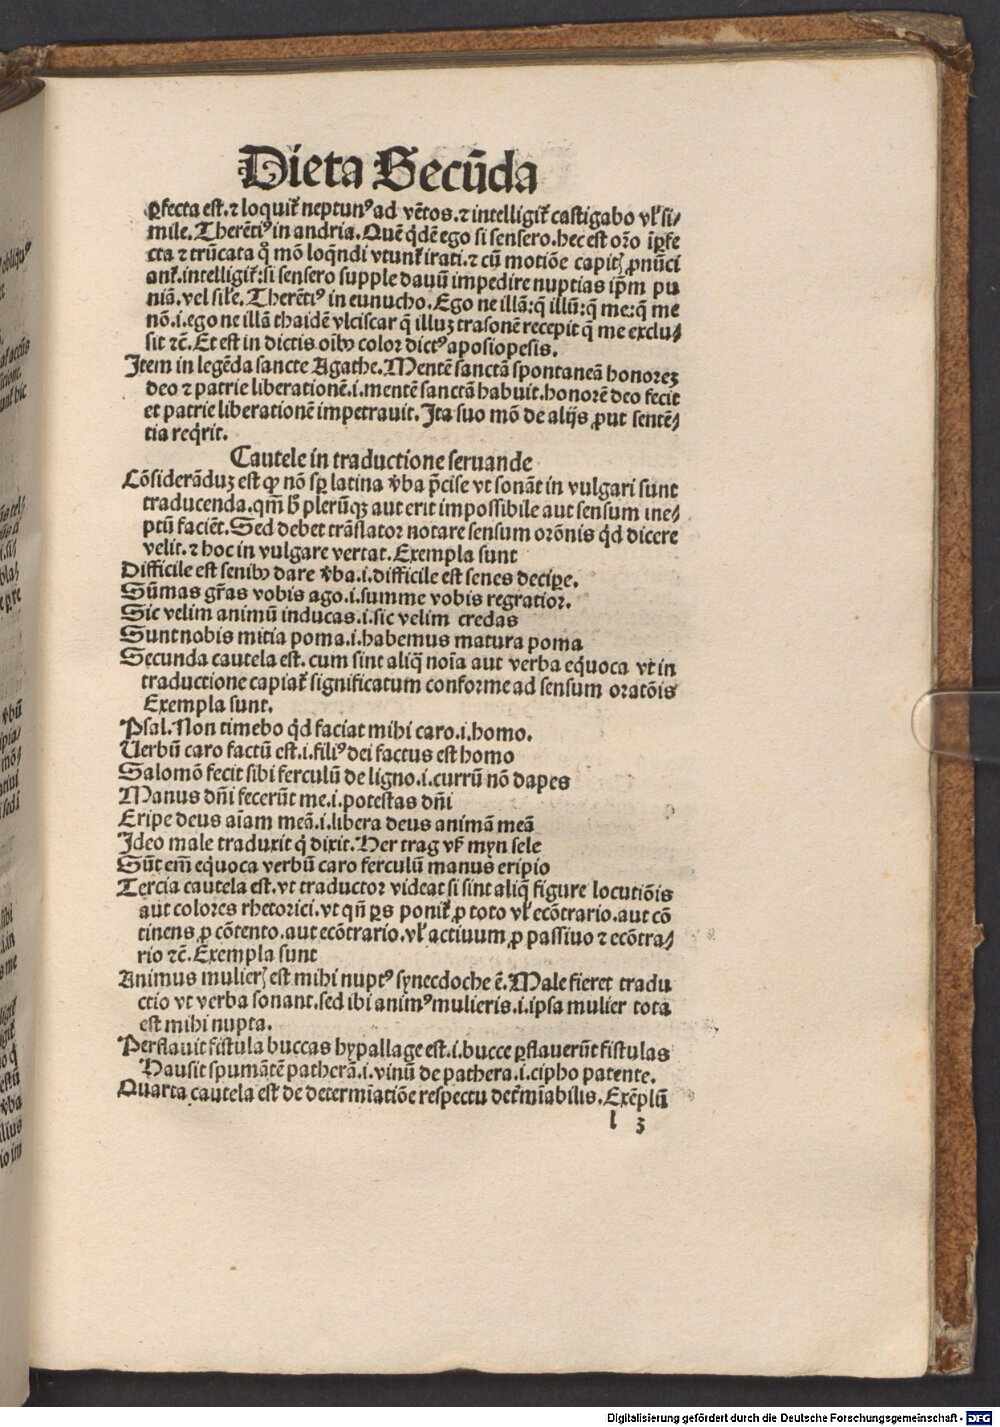 Dieta Secūda
ꝑfecta est.⁊ loquit᷑ neptunꝰ ad vētos.⁊ intelligit᷑ castigabo vl̓ si⸗
mile.Therētiꝰ in andria.Quē qͥdē ego si sensero.hec est oro̅ ip̄fe
cta ⁊ trūcata qͥ mō loqn̄di vtunt᷑ irati.⁊ cū motiōe capitꝭ ꝓnūci
ant᷑.intelligit᷑:si sensero supple dauū impedire nuptias ip̄m pu
niā.vel sile.Therētiꝰ in eunucho.Ego ne illā:q̄ illū:q̄ me:q̄ me
nō.i.ego ne illā thaidē vlciscar q̄ illuꝫ trasonē recepit q̄ me exclu⸗
sit ⁊c̄.Et est in dictis oībꝫ color dictꝰ aposiopesis.
Item in legēda sancte Agathe.Mentē sanctā spontaneā honoreꝫ
deo ⁊ patrie liberationē.i.mentē sanctā habuit.honorē deo fecit
et patrie liberationē impetrauit.Ita suo mō de alijs ꝓut sentē⸗
tia reqͥrit.
Cautele in traductione seruande
Cōsiderāduꝫ est ꝙ nō sꝑ latina v̓ba p̄cise vt sonāt in vulgari sunt
traducenda.qm̄ h̓ plerūqꝫ aut erit impossibile aut sensum ine⸗
ptū faciēt.Sed debet trāslator notare sensum orōnis qͥd dicere
velit.⁊ hoc in vulgare vertat.Exempla sunt
Difficile est senibꝫ dare v̓ba.i.difficile est senes deciꝑe.
Sūmas gr̄as vobis ago.i.summe vobis regratior.
Sic velim animū inducas.i.sic velim credas
Sunt nobis mitia poma.i.habemus matura poma
Secunda cautela est. cum sint aliq̄ noīa aut verba eq̄uoca vt in
traductione capiat᷑ significatum conforme ad sensum oratōis
Exempla sunt.
Psal.Non timebo qͥd faciat mihi caro.i.homo.
Uerbū caro factū est.i.filiꝰ dei factus est homo
Salomō fecit sibi ferculū de ligno.i.currū nō dapes
Manus dn̄i fecerūt me.i.potestas dn̄i
Eripe deus aīam meā.i.libera deus animā meā
Ideo male traduxit qͥ dixit.Her trag vß myn sele
Sūt em̄ eq̄uoca verbū caro ferculū manus eripio
Tercia cautela est.vt traductor videat si sint aliq̄ figure locutiōis
aut colores rhetorici.vt qn̄ ꝑs ponit᷑ ꝓ toto vl̓ ecōtrario.aut cō
tinens ꝓ cōtento.aut ecōtrario.vl̓ actiuum ꝓ passiuo ⁊ ecōtra⸗
rio ⁊c̄.Exempla sunt
Animus mulierꝭ est mihi nuptꝰ synecdoche ē.Male fieret tradu
ctio vt verba sonant.sed ibi animꝰ mulieris.i.ipsa mulier tota
est mihi nupta.
Perflauit fistula buccas hypallage est.i.bucce ꝑflauerūt fistulas
Hausit spumātē patherā.i.vinū de pathera.i.cipho patente.
Quarta cautela est de determīatiōe respectu det̓mīabilis.Exēplū
l 3
Digitalisierung gefördert durch die Deutsche Forschungsgemeinschaft - DFG